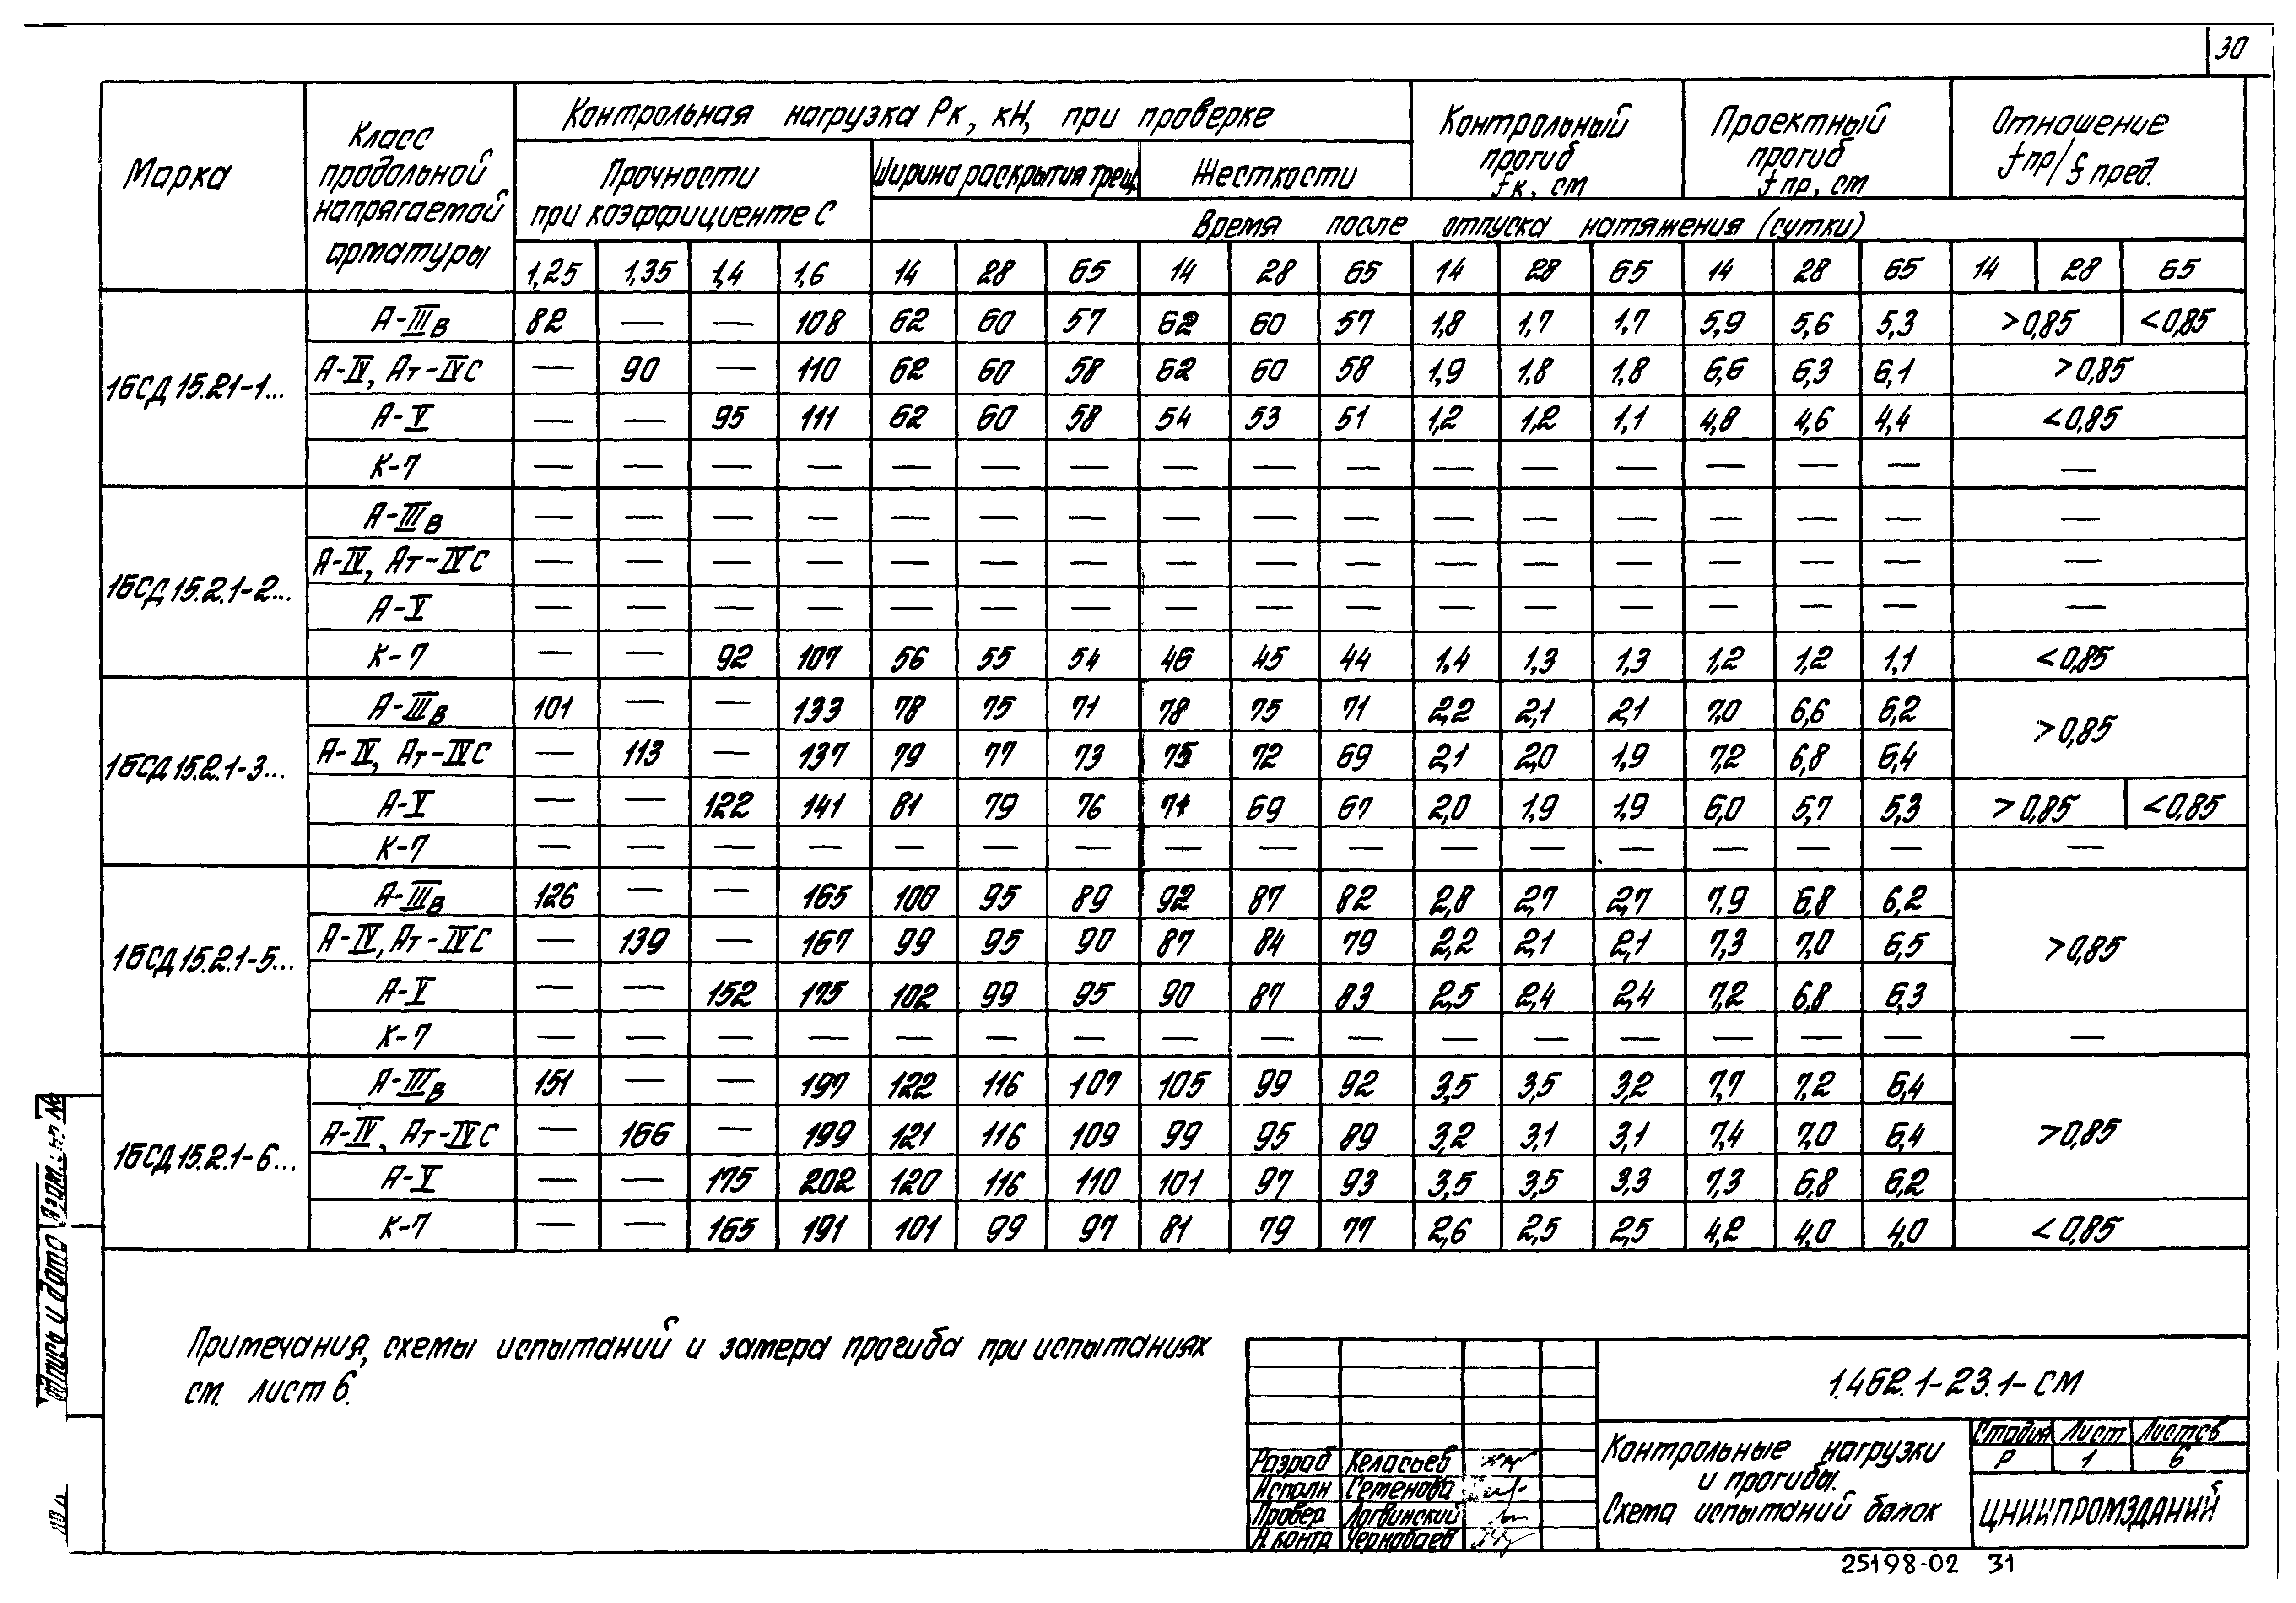 30
Марка
Класс продольной напрягаемой арматуры
Контрольная нагрузка Рк, кН, при проверке
Контрольный прогиб fк, см
Проектный прогиб fпр, см
Отношение fпр/fпред.
Прочности при коэффициенте С
Ширина раскрытия трещ.
Жесткости
Время после отпуска натяжения (сутки)
1,25 1,35 1,4 1,6 14 28 65 14 28 65 14 28 65 14 28 65 14 28 65
1БСД 15.2.1-1...
А-IIIв 82 — — 108 62 60 57 62 60 57 1,8 1,7 1,7 5,9 5,6 5,3 >0,85 <0,85
А-IV, Ат-IVС — 90 — 110 62 60 58 62 60 58 1,9 1,8 1,8 6,6 6,3 6,1 >0,85
А-V — — 95 111 62 60 58 54 53 51 1,2 1,2 1,1 4,8 4,6 4,4 <0,85
К-7 — — — — — — — — — — — — — — — — —
1БСД 15.2.1-2...
А-IIIв — — — — — — — — — — — — — — — — —
А-IV, Ат-IVС — — — — — — — — — — — — — — — — —
А-V — — — — — — — — — — — — — — — — —
К-7 — — 92 107 56 55 54 46 45 44 1,4 1,3 1,3 1,2 1,2 1,1 <0,85
1БСД 15.2.1-3...
А-IIIв 101 — — 133 78 75 71 78 75 71 2,2 2,1 2,1 7,0 6,6 6,2 >0,85
А-IV, Ат-IVС — 113 — 137 79 77 73 75 72 69 2,1 2,0 1,9 7,2 6,8 6,4
А-V — — 122 141 81 79 76 71 69 67 2,0 1,9 1,9 6,0 5,7 5,3 >0,85 <0,85
К-7 — — — — — — — — — — — — — — — — —
1БСД 15.2.1-5...
А-IIIв 126 — — 165 100 95 89 92 87 82 2,8 2,7 2,7 7,9 6,8 6,2 >0,85
А-IV, Ат-IVС — 139 — 167 99 95 90 87 84 79 2,2 2,1 2,1 7,3 7,0 6,5
А-V — — 152 175 102 99 95 90 87 83 2,5 2,4 2,4 7,2 6,8 6,3
К-7 — — — — — — — — — — — — — — — — —
1БСД 15.2.1-6...
А-IIIв 151 — — 197 122 116 107 105 99 92 3,5 3,5 3,2 7,7 7,2 6,4 >0,85
А-IV, Ат-IVС — 166 — 199 121 116 109 99 95 89 3,2 3,1 3,1 7,4 7,0 6,4
А-V — — 175 202 120 116 110 101 97 93 3,5 3,5 3,3 7,3 6,8 6,2
К-7 — — 165 191 101 99 97 81 79 77 2,6 2,5 2,5 4,2 4,0 4,0 <0,85
Примечания, схемы испытаний и замера прогиба при испытаниях
см. лист 6.
1.462.1-23.1-СМ
Контрольные нагрузки
и прогибы.
Схема испытаний балок
Стадия Лист Листов
Р 1 6
ЦНИИПРОМЗДАНИЙ
Разраб Келасьев
Исполн Семенова
Провер Логвинский
Н. контр Чернобаев
25198-02 31
и дата
Взам.